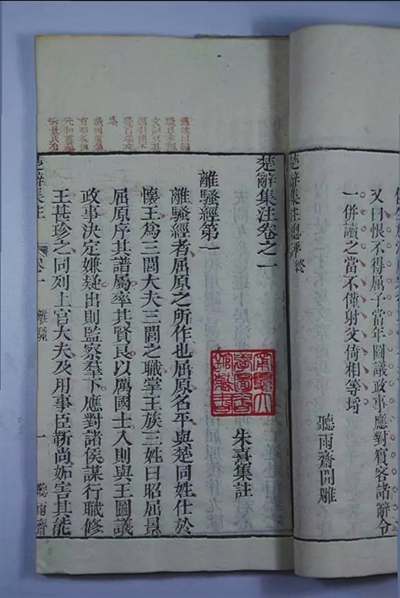 又日恨不得屈子當年圖議政事應對賓客諸辭令
一併讀之當不僅射父倚相等埒
聽雨齋開雕
楚辭集注總評 終
楚辭集注卷之一
朱熹集註
離騷經第一
離騷經者屈原之所作也屈原名平與楚同姓仕於
懷王爲三閭大夫三閭之職掌王族三姓曰昭屈景
屈原序其譜屬率其賢良以厲國士入則與王圖議
政事決定嫌疑出則監察羣下應對諸侯謀行職修
王甚珍之同列上官大夫及用事臣靳尚妬害其能
楚辭集注 卷一 離騷 一 聽雨齋